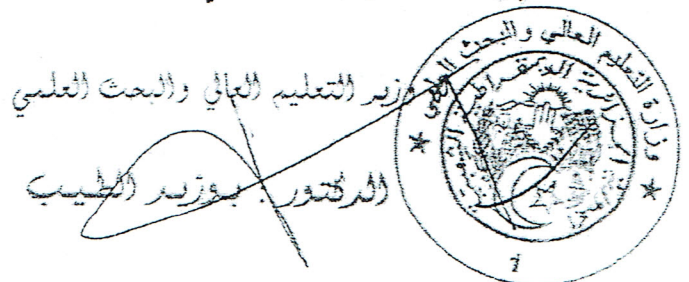 وزير التعليم العالي والبحث العلمي
الدكتور . بوزيد الطيب
وزارة التعليم العالي والبحث العلمي
الجزائرية الديمقراطية
أ